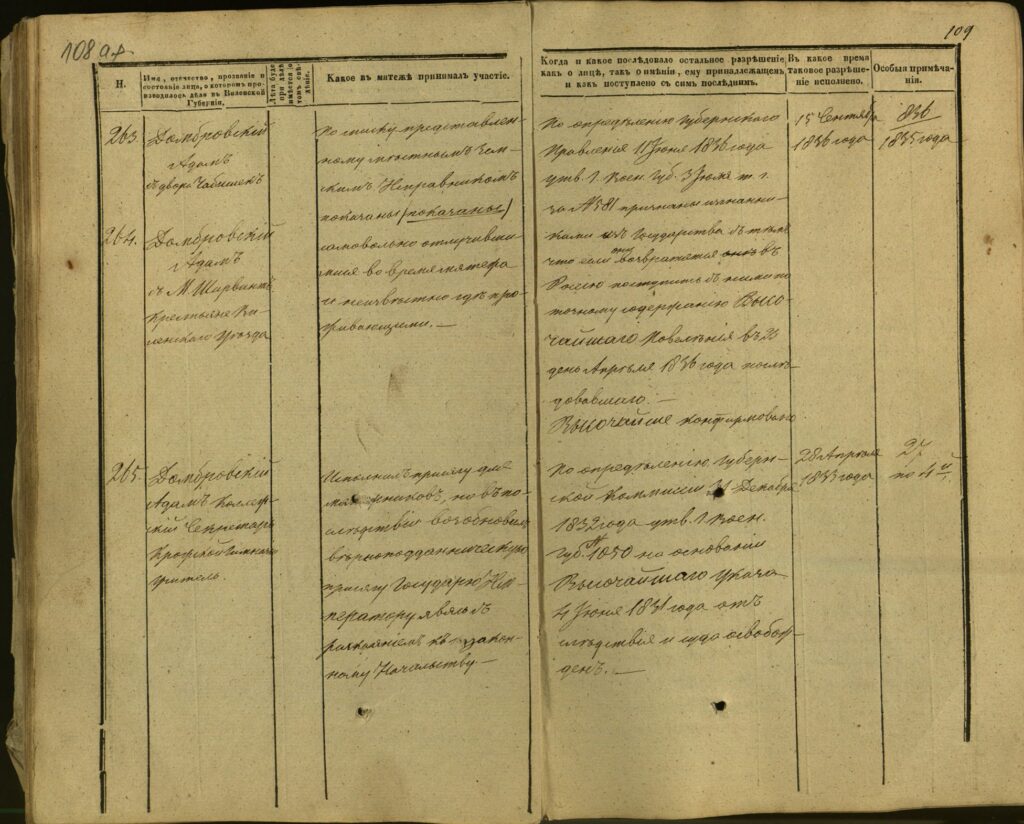 108 ад
109
Н.
Имя, отечество, прозваніе и
состояніе лица, о которомъ про-
изводилось дѣло въ Виленской
Губерніи.
Лѣта буде
при дѣлѣ
имѣется о
томъ свѣ-
дѣніе.
Какое въ мятежѣ принималъ участіе.
Когда и какое послѣдовало остальное разрѣшеніе
какъ о лицѣ, такъ о имѣніи, ему принадлежащемъ
и какъ поступлено съ симъ послѣднимъ.
Въ какое время
таковое разрѣше-
ніе исполнено.
Особыя примѣча-
нія.
263.
Домбровскій
Адамъ
съ двора
264.
Домбровскій
Адамъ
съ М. Ширвинтъ
Крестьяне Ви-
ленскаго Уѣзда
По списку представлен-
ному мѣстнымъ Зем-
скимъ Исправникомъ
показаны (показаны)
самовольно отлучивши-
мися во время мятежа
и неизвѣстно гдѣ про-
живающими. —
По опредѣленію Губернскаго
Правленія 11 Іюня 1836 года
утв. Г. Воен. Губ. 3 Іюля т. г.
за № 581 признаны изгнанни-
ками изъ Государства съ тѣмъ
что если они возвратятся въ
Россію поступить съ ними по
точному содержанію Высо-
чайшаго Повелѣнія въ 23
день Апрѣля 1836 года послѣ-
довавшаго. —
Высочайше конфирмовано
15 Сентября
1836 года
836
1835 года
265.
Домбровскій
Адамъ Коллеж-
скій Секретарь
Крожской Гимназіи
Учитель.
присягу для
мятежниковъ, но въ по-
слѣдствіи возобновилъ
вѣрноподданническую
присягу Государю Им-
ператору явясь съ
раскаяніемъ къ закон-
ному Начальству —
По опредѣленію Губерн-
ской Коммисіи 31 Декабря
1832 года утв. Г. Воен.
Губ. № 1050 на основаніи
Высочайшаго Указа
4 Іюня 1831 года отъ
слѣдствія и суда освобож-
денъ. —
28 Апрѣля
1833 года
27
по 4 й